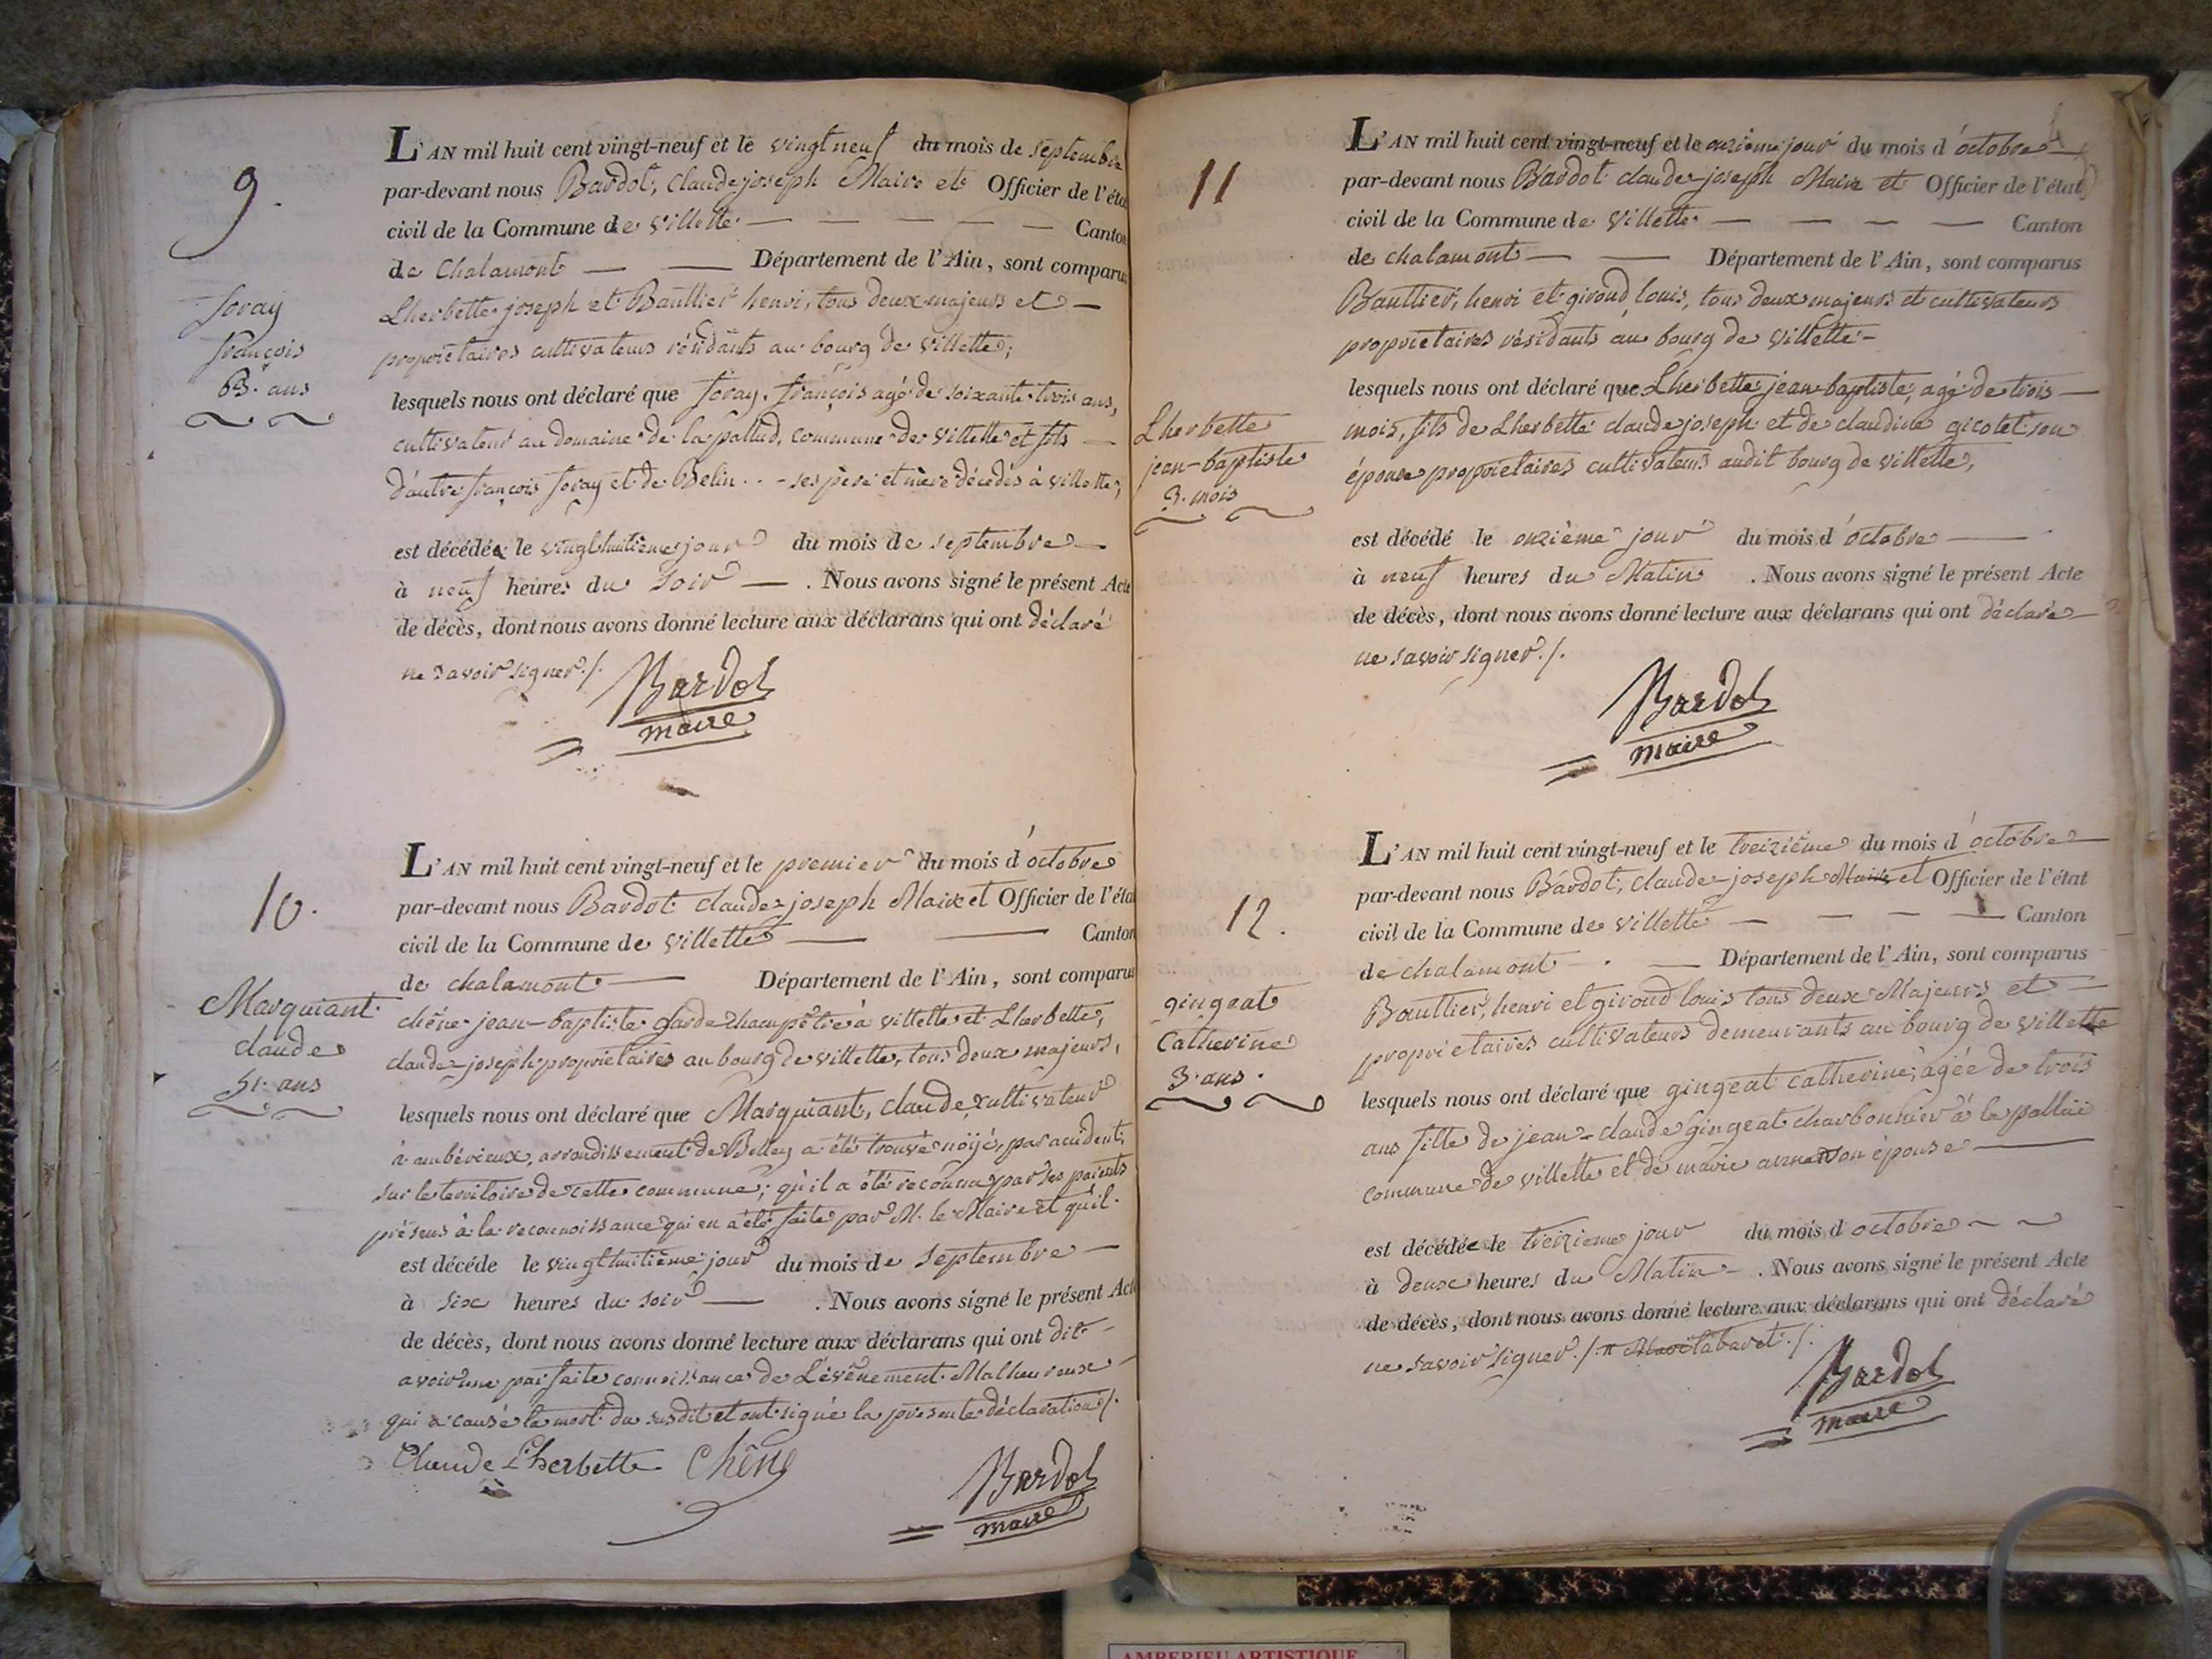 9.
foray
françois
63. ans
L'AN mil huit cent vingt-neuf et le vingt neuf du mois de septembre
par-devant nous Bardot, claude joseph Maire et Officier de l'éta
civil de la Commune de Villette — — — — Canton
de Chalamont — — Département de l'Ain, sont comparus
Lherbette joseph et Baullier henri, tous deux majeurs et —
proprietaires cultivateurs résidants au bourg de Villette;
lesquels nous ont déclaré que foray, françois agé de soixante trois ans,
cultivateur au domaine de la pallud, commune de Villette et fils —
d'autre françois foray et de Belin . . - ses père et mère décédés à Villette;
est décédé le vingt huitième jour du mois de septembre —
à neuf heures du soir — . Nous avons signé le présent Acte
de décès, dont nous avons donné lecture aux déclarans qui ont déclaré
ne savoir signer ./.
Bardot
maire
10.
Marquiant
claude
51. ans
L'AN mil huit cent vingt-neuf et le premier du mois d'octobre
par-devant nous Bardot claude joseph Maire et Officier de l'état
civil de la Commune de Villette — — Canton
de chalamont — Département de l'Ain, sont comparus
chêne jean-baptiste garde champêtre à villette et Lherbette,
claude-joseph proprietaires au bourg de villette, tous deux majeurs,
lesquels nous ont déclaré que Marquiant, claude cultivateur
à ambérieux, arrondissement de Belley a été trouvé noijé, par accident,
sur le territoire de cette commune; qu'il a été reconnu par ses parents
présens à la reconnoissance qui en a été faite par M. le Maire et qu'il
est décéde le vingt huitième jour du mois de septembre —
à six heures du soir — . Nous avons signé le présent Acte
de décès, dont nous avons donné lecture aux déclarans qui ont dit
avoir une parfaite connoissance de L'évênement Malheureux
qui a causé la mort du susdit et ont signé la presente déclaration ./.
Claude Lherbette Chêne
Bardot
maire
11
Lherbette
jean-baptiste
3. mois
L'AN mil huit cent vingt-neuf et le onzième jour du mois d'octobre —
par-devant nous Bardot claude-joseph Maire et Officier de l'état
civil de la Commune de Villette — — — — Canton
de chalamont — — Département de l'Ain, sont comparus
Baullier, henri et giroud louis, tous deux majeurs et cultivateurs
proprietaires résidants au bourg de Villette —
lesquels nous ont déclaré que Lherbette jean-baptiste, agé de trois —
mois, fils de Lherbette claude joseph et de claudine gicotet son
épouse proprietaires cultivateurs audit bourg de Villette,
est décédé le onzième jour du mois d'octobre —
à neuf heures du Matin . Nous avons signé le présent Acte
de décès, dont nous avons donné lecture aux déclarans qui ont déclaré —
ne savoir signer ./.
Bardot
maire
12.
gingeat
Catherine
3. ans.
L'AN mil huit cent vingt-neuf et le treizième du mois d'octobre —
par-devant nous Bardot, claude-joseph Maire et Officier de l'état
civil de la Commune de Villette — — — — Canton
de chalamont — . — Département de l'Ain, sont comparus
Baullier, henri et giroud louis tous deux Majeurs et —
proprietaires cultivateurs demeurants au bourg de Villette
lesquels nous ont déclaré que gingeat Catherine, agée de trois
ans fille de jean-claude gingeat charbonnier à la pallüe
commune de villette et de marie anne son épouse —
est décédée le treizieme jour du mois d octobre ~ ~
à deux heures du Matin - . Nous avons signé le présent Acte
de décès, dont nous avons donné lecture aux déclarans qui ont déclaré
ne savoir signer ./. tabaret ./.
Bardot
maire
AMBERIEU ARTISTIQUE